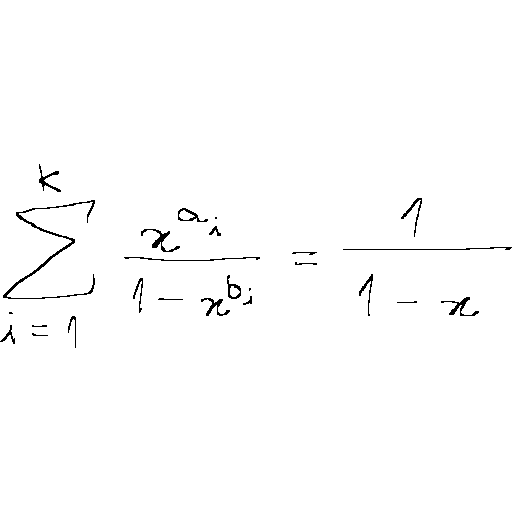 \sum_{i=1}^{k} \frac{x^{a_i}}{1-x^{b_i}} = \frac{1}{1-x}